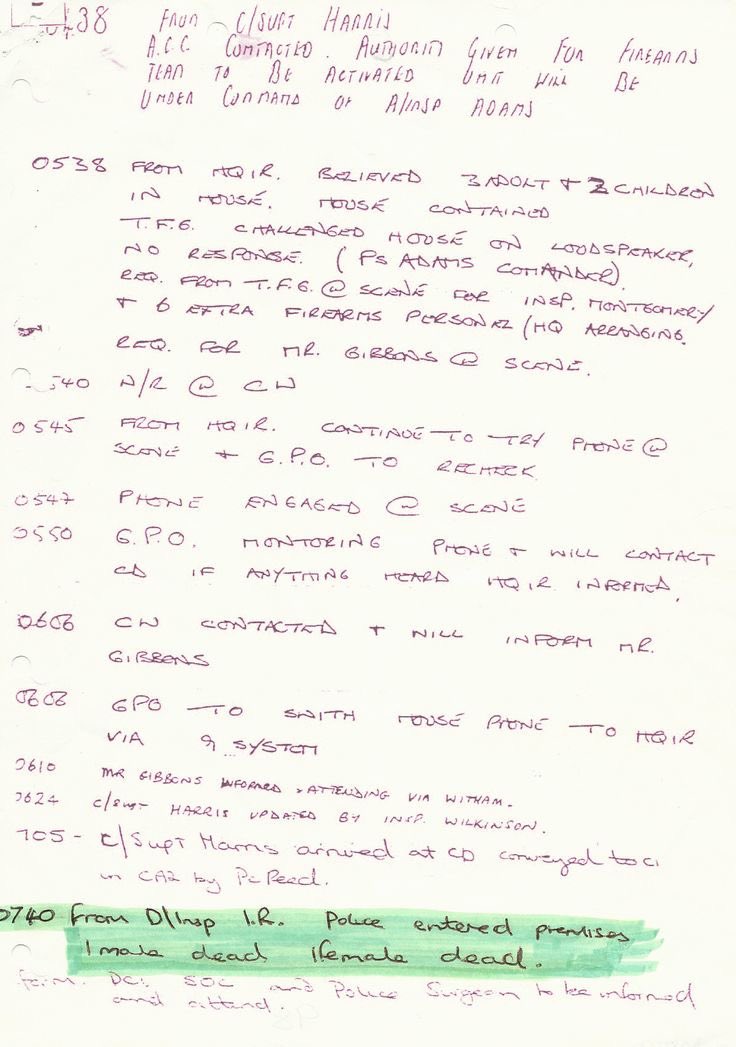 0438 FROM C/SUPT HARRIS
A.C.C CONTACTED. AUTHORITY GIVEN FOR FIREARMS
TEAM TO BE ACTIVATED UNIT WILL BE
UNDER COMMAND OF A/INSP ADAMS
0538 FROM HQIR. BELIEVED 3 ADULT + 2 CHILDREN
IN HOUSE. HOUSE CONTAINED
T.F.G. CHALLENGED HOUSE ON LOUDSPEAKER,
NO RESPONSE. (PS ADAMS COMANDER).
REQ. FROM T.F.G. @ SCENE FOR INSP. MONTGOMERY
+ 6 EXTRA FIREARMS PERSONEL (HQ ARRANGING.
REQ. FOR MR. GIBBONS @ SCENE.
540 N/R @ CW
0545 FROM HQIR. CONTINUE TO TRY PHONE @
SCENE + G.P.O. TO RECHECK
0547 PHONE ENGAGED @ SCENE
0550 G.P.O. MONTORING PHONE + WILL CONTACT
CD IF ANYTHING HEARD HQIR INFORMED.
0606 CW CONTACTED + WILL INFORM MR.
GIBBONS
0608 GPO TO SWITH HOUSE PHONE TO HQIR
VIA 9 SYSTEM
0610 MR GIBBONS INFORMED + ATTENDING VIA WITHAM.
0624 C/SUPT HARRIS UPDATED BY INSP. WILKINSON.
705 - C/Supt Harris arrived at CD conveyed to
in CA2 by Pc Reed.
0740 From D/Insp I.R. Police entered premises
1 male dead 1 female dead.
DCI, SOC and Police Surgeon to be informed
and attend.